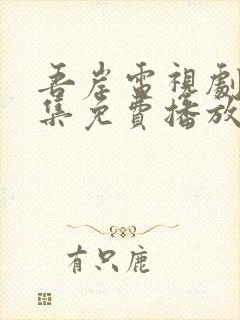 吾岸電視劇
集免費播放
有只鹿